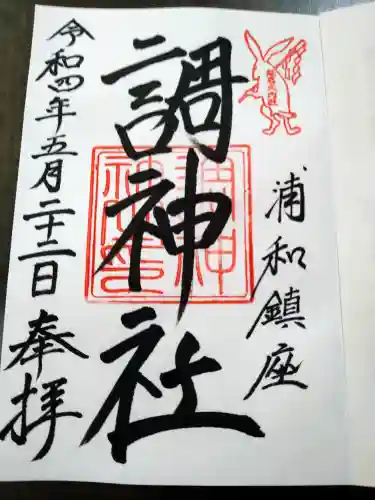 浦和鎮座
調神社
令和四年五月二十二日
奉拝